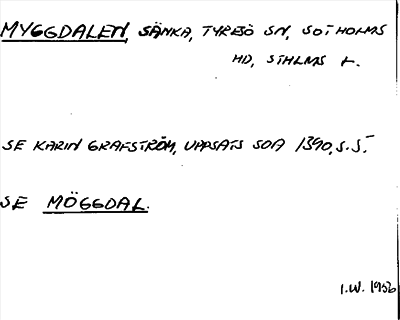 MYGGDALEN, SÄNKA, TYRESÖ SN, SOTHOLMS
HD, STHLMS L.
SE KARIN GRAFSTRÖM, UPPSATS SOA 1390, S.5.
SE MÖGGDAL.
I.W. 1956